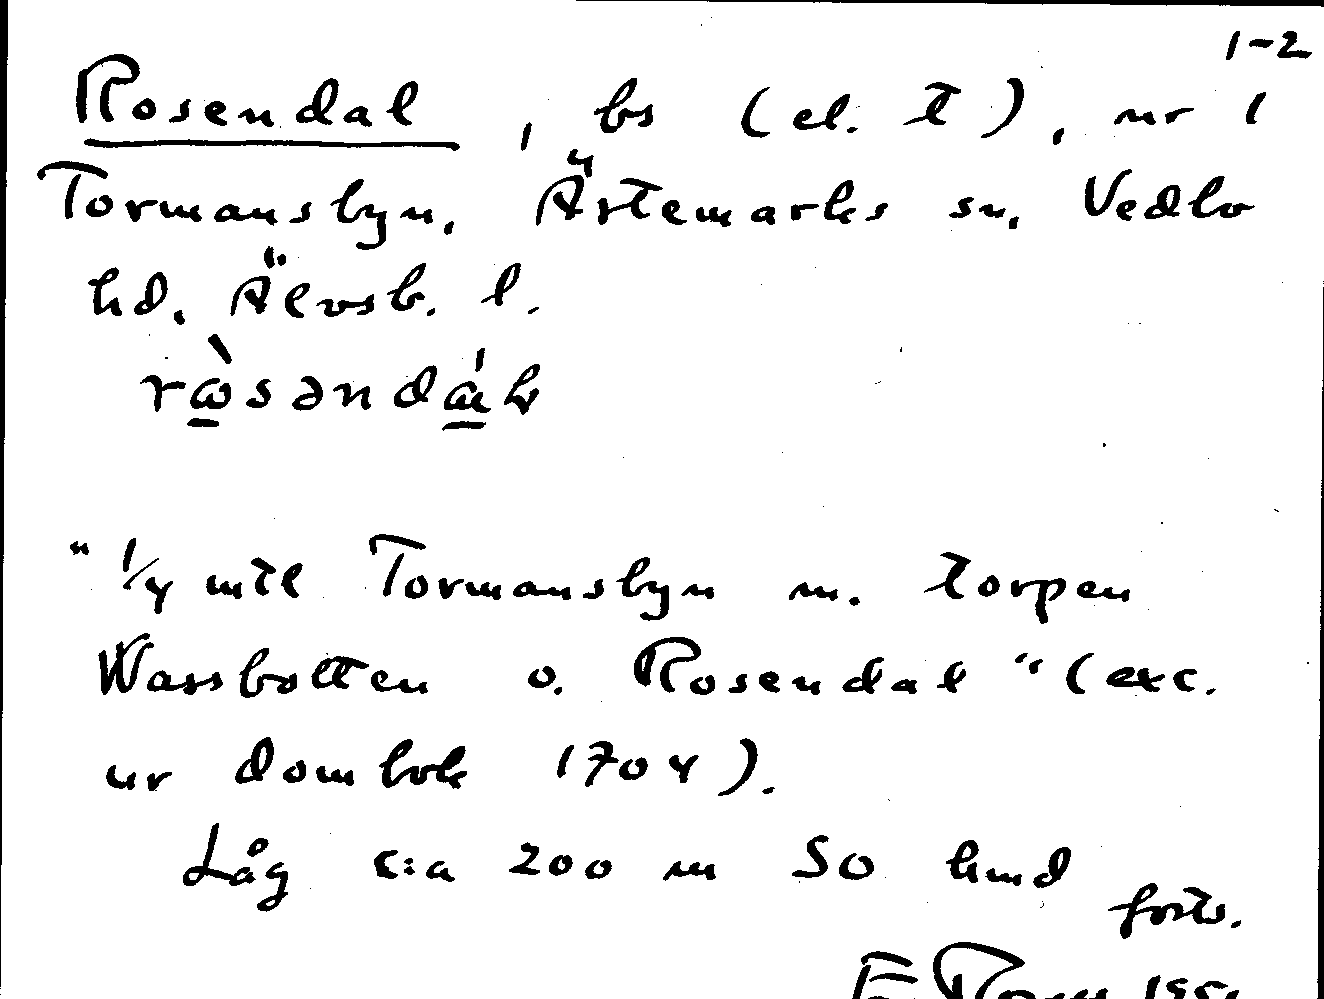 1-2
Rosendal, bs (el. t), nr 1
Tormansbyn. Ärtemarks sn, Vedbo
hd. Älvsb. l.
"1/4 mtl Tormansbyn m. torpen
Wassbotten o. Rosendal" (exc.
ur dombok 1704).
Låg c:a 200 m SO
forts.
E